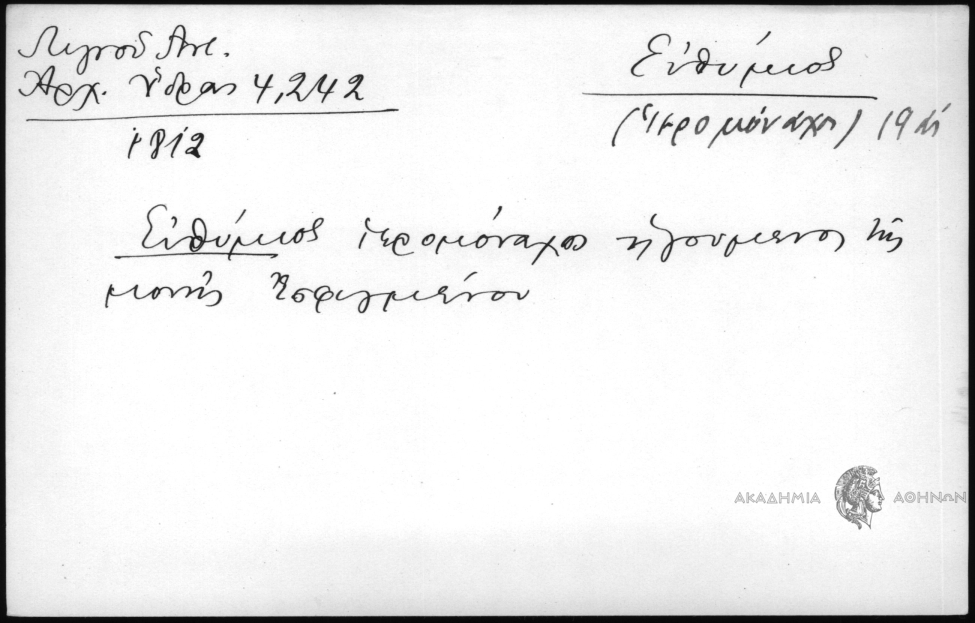 Λιγνοῦ Ἀντ.
Ἀρχ. Ὕδρας 4,242
1812
Εὐθύμιος
(Ἱερομόναχος) 19 αἰ
Εὐθύμιος ἱερομόναχος ἡγούμενος τῆς
μονῆς Ἐσφιγμένου
ΑΚΑΔΗΜΙΑ ΑΘΗΝΩΝ